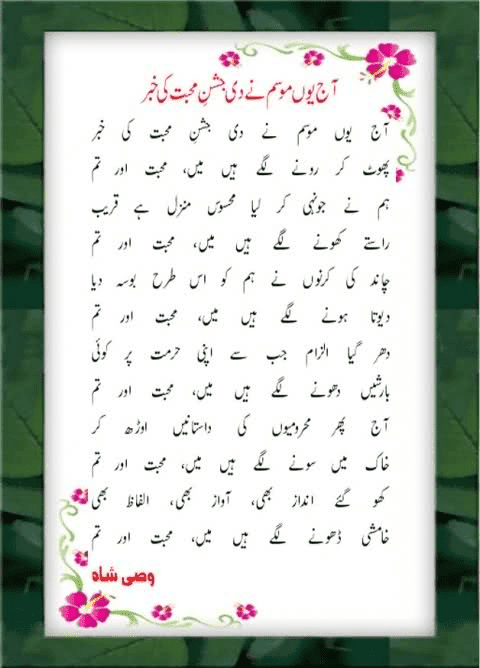 آج یوں موسم نے دی جشنِ محبت کی خبر
آج یوں موسم نے دی جشنِ محبت کی خبر
پھوٹ کر رونے لگے ہیں میں، محبت اور تم
ہم نے جونہی کر لیا محسوس منزل ہے قریب
راستے کھونے لگے ہیں میں، محبت اور تم
چاند کی کرنوں نے ہم کو اس طرح بوسہ دیا
دیوتا ہونے لگے ہیں میں، محبت اور تم
دھر گیا الزام جب سے اپنی حرمت پر کوئی
بارشیں دھونے لگے ہیں میں، محبت اور تم
آج پھر محرومیوں کی داستانیں اوڑھ کر
خاک میں سونے لگے ہیں میں، محبت اور تم
کھو گئے انداز بھی، آواز بھی، الفاظ بھی
خامشی ڈھونے لگے ہیں میں، محبت اور تم
وصی شاہ